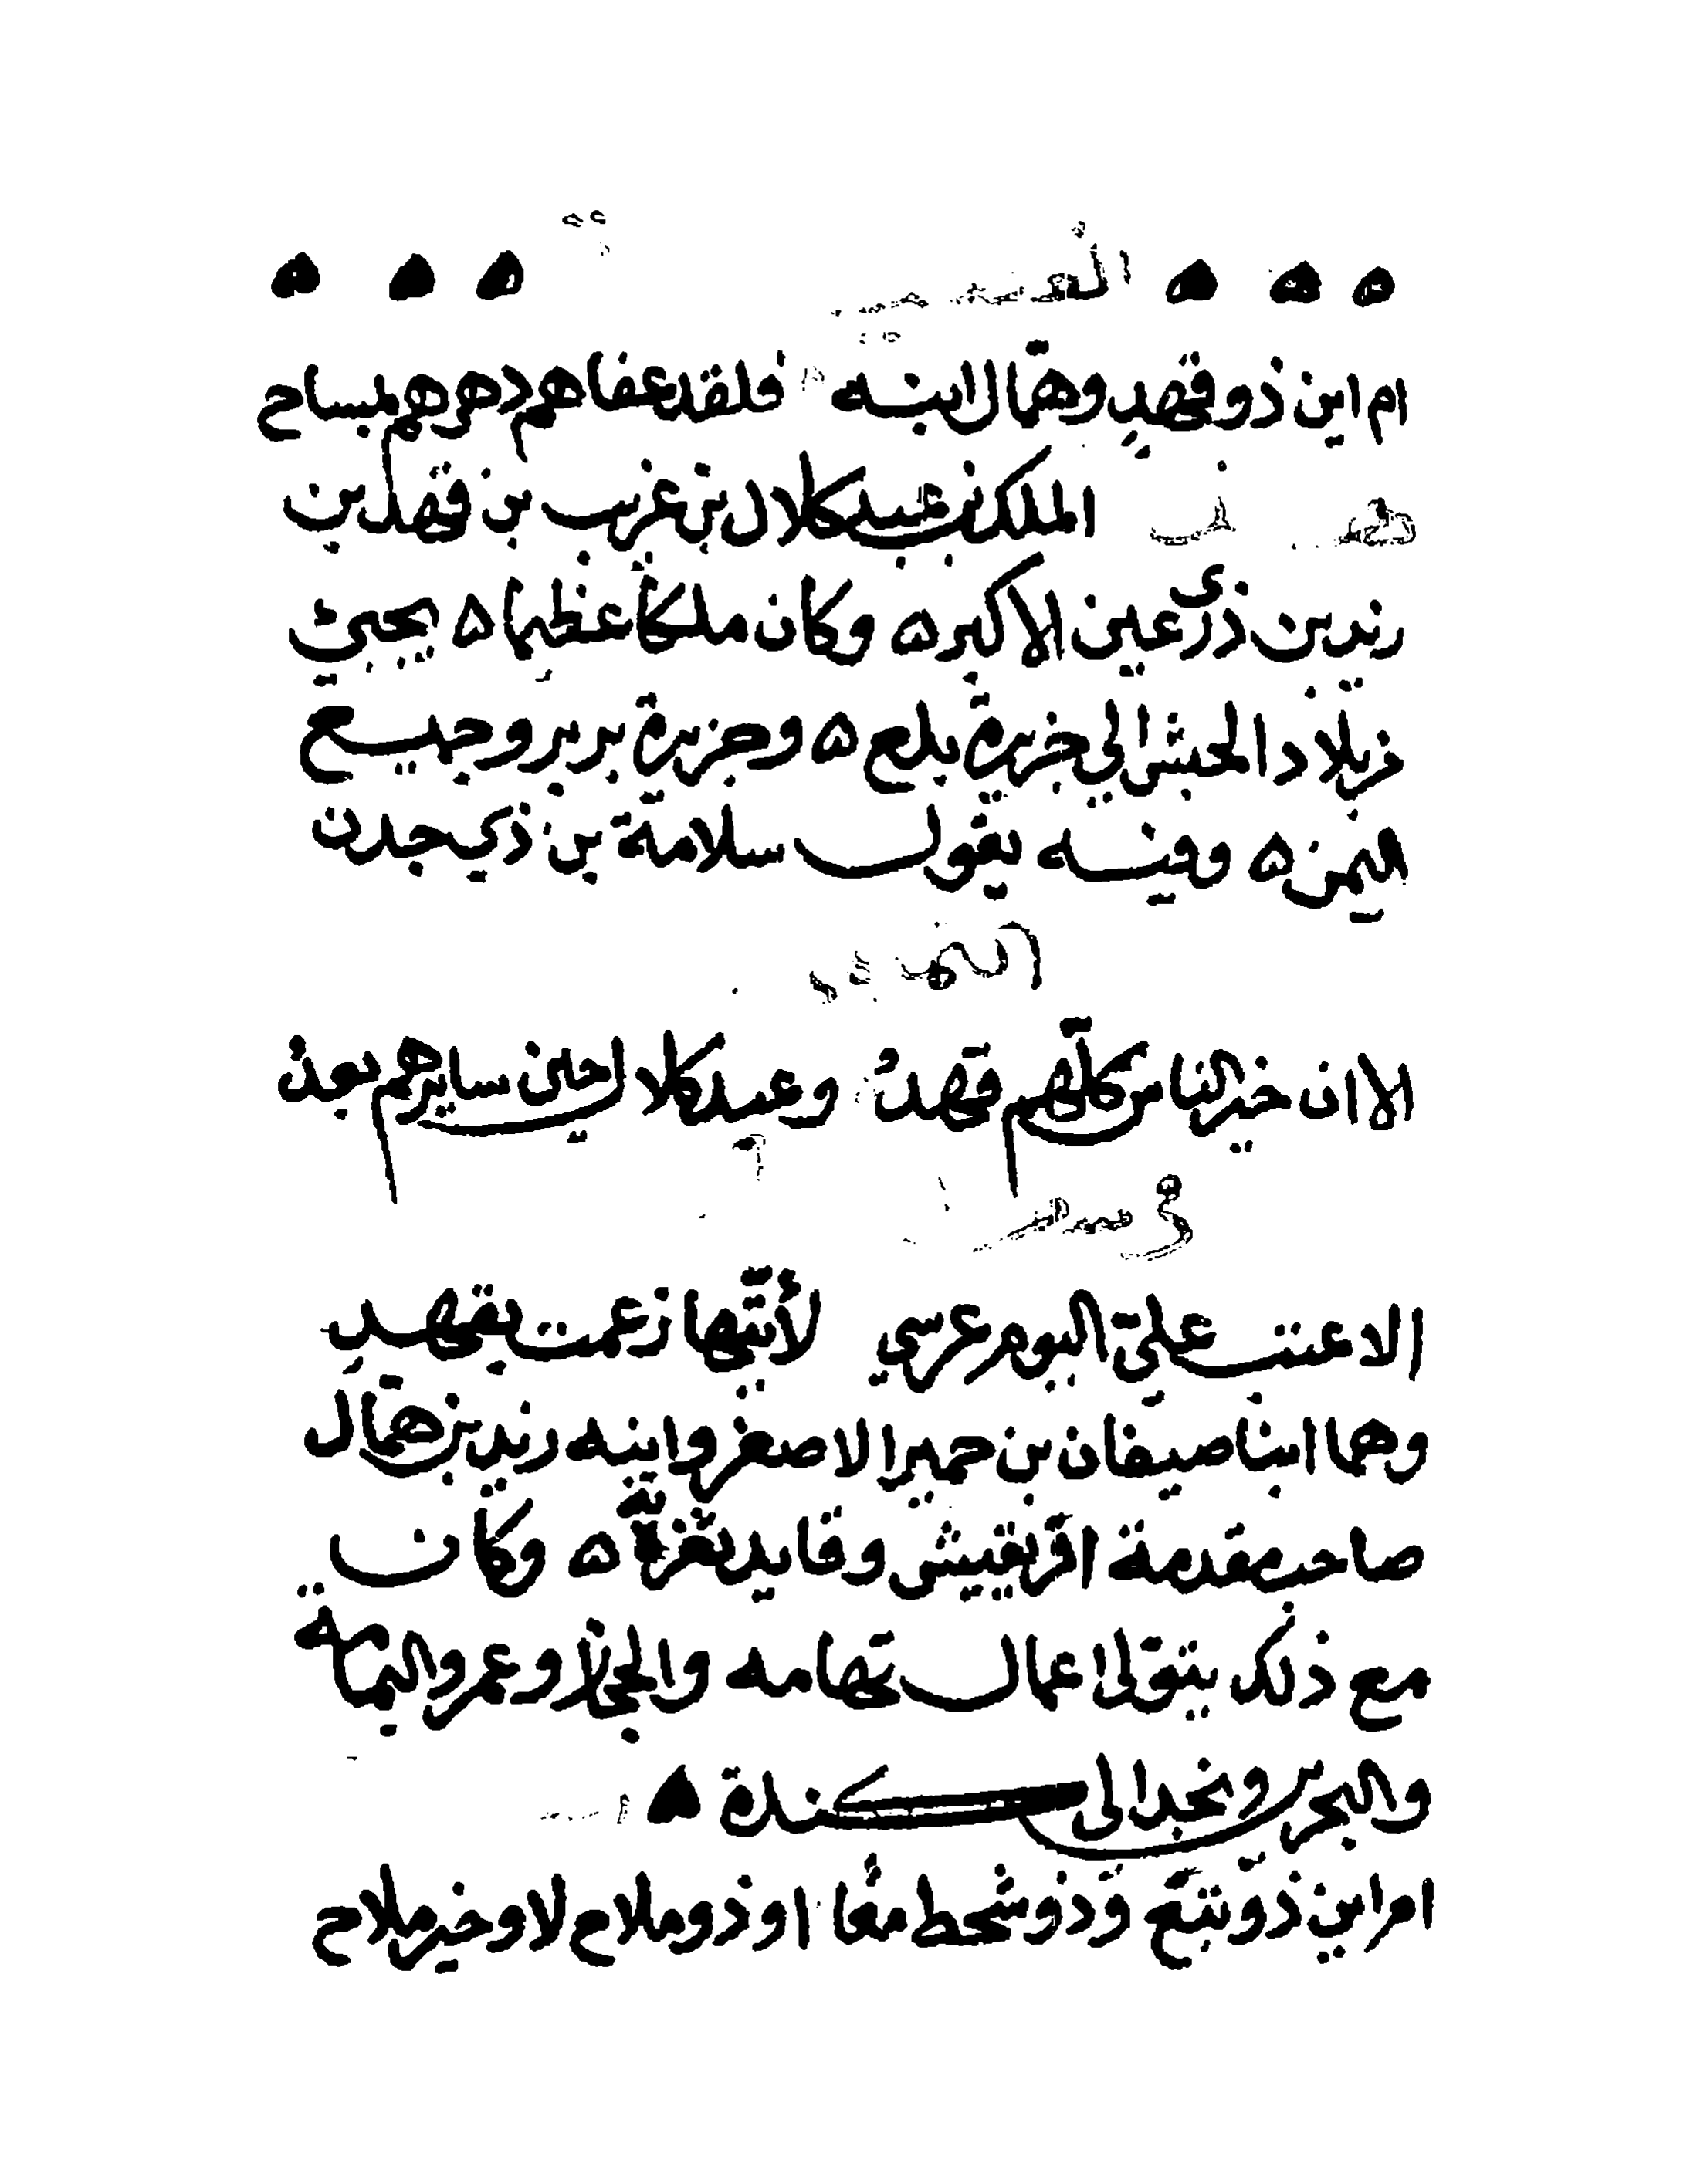 ام اين ذو قهد وهمال ابنه فلقد عفاهم دهرهم بساح
الملك بن عبد كلال بن عريب بن فهد بن
زيد بن ذي رعين الاكبر ۵ وكان ملكا عظيما ۵ يجبى
من بلاد الحبش الى جزيرة بلع ۵ وجزيرة بربر وجميع
اليمن ۵ وفيه يقول سلامة بن ذي جدن
الا ان خير الناس كلهم فهد وعبد كلال حين سايرهم بعد
الا عتبت علي اليوم عرسي لأنها زعمت بقهد
وهما ابنا صيفان بن حمير الاصغر وابنه زيد بن همال
صاحب مقدمة افريقيش وقايد ۵ وكان
مع ذلك يتولى اعمال تهامه والحجاز وعمر واليمامة
والبحرين ونجد الى كندة
ام اين ذو تبع وذو شحط معا او ذو ملاح لا وخير ملاح